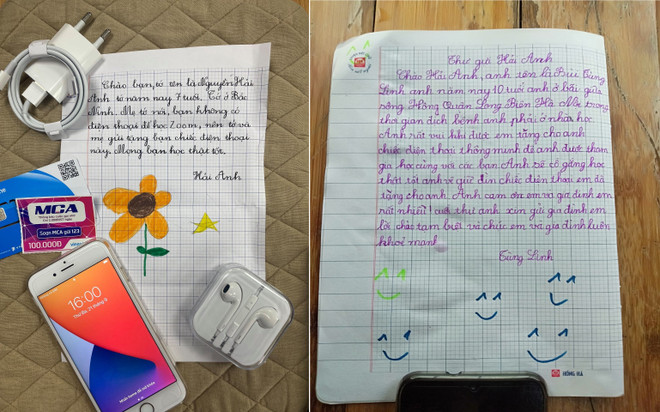 Chào bạn, tớ tên là Nguyễn Hải
Anh tớ năm nay 7 tuổi. Tớ ở Bắc
Ninh. Mẹ tớ nói, bạn không có
điện thoại để học Zoom, nên tớ và
mẹ gửi tặng bạn chiếc điện thoại
này. Mong bạn học thật tốt.
Hải Anh
MCA
Soạn MCA gửi 123
100.000Đ
16:00
Thư gửi Hải Anh
Chào Hải Anh, anh tên là Bùi Tùng
Linh anh năm nay 10 tuổi anh ở bãi giữa
sông Hồng Quận Long Biên Hà Nội trong
thời gian dịch bệnh anh phải ở nhà học.
Anh rất vui khi được em tặng cho anh
chiếc điện thoại thông minh để anh được tham
gia học cùng với các bạn. Anh sẽ cố gắng học
thật tốt anh sẽ giữ gìn chiếc điện thoại em đã
tặng cho anh. Anh cảm ơn em và gia đình em
rất nhiều! cuối thư anh xin gửi gia đình em
lời chào tạm biệt và chúc em và gia đình luôn
khoẻ mạnh
Tùng Linh
HỒNG HÀ